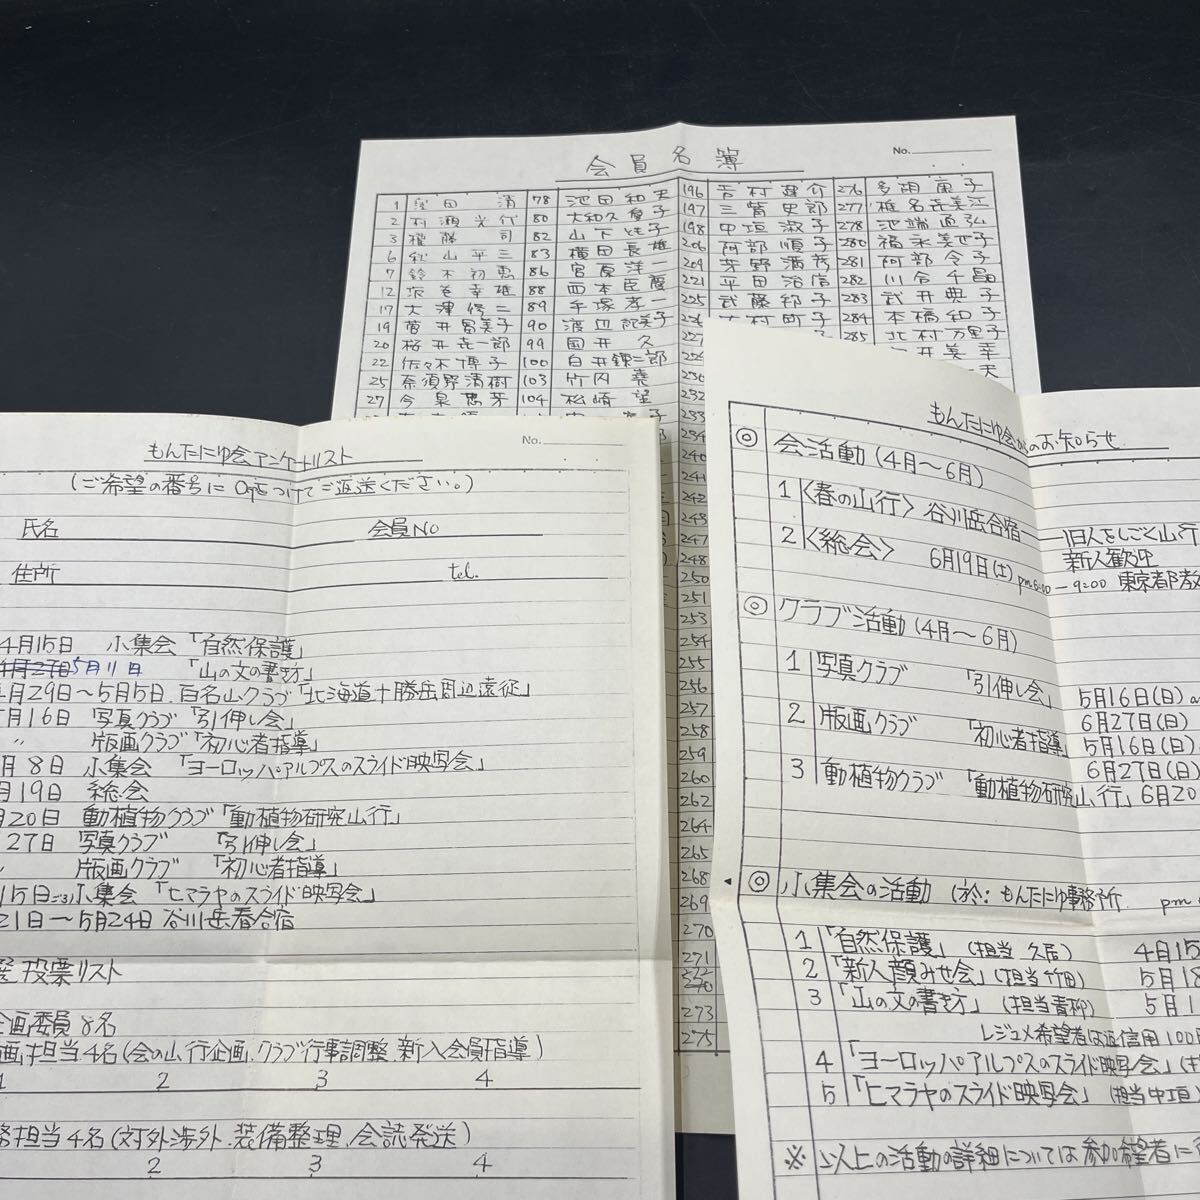 会員名簿
No.
1 清 78 池田和夫 196 吉村健介 276 多胡庸子
2 村瀬光代 80 大和久 子 197 三觜史郎 277 椎名喜美江
3 権藤 司 82 山下 子 198 中垣淑子 278 池端直弘
6 秋山平三 83 横田長雄 206 阿部順子 280 福永美也子
7 鈴木初恵 86 宮原洋一 209 茅野満 281 阿部令子
12 坂巻幸雄 88 西本臣慶 221 平田治信 282 川合千晶
17 大津修二 89 手塚孝一 225 武藤 子 283 武井典子
19 菅井留美子 90 渡辺 美子 226 村町子 284 本橋和子
20 桜井 一郎 99 国井 久 227 285 北村万里子
22 佐々木 子 100 白井錬二郎 井美幸
25 奈須野清樹 103 竹内 230 夫
27 今泉 104 松崎 望 232
233
240
241
242
243
247
248
250
251
253
254
255
256
257
258
259
260
262
264
265
268
269
270
271
273
275
もんたにゆ会アンケートリスト
No.
(ご希望の番号に○をつけてご返送ください。)
氏名 会員NO
住所 tel.
4月15日 小集会「自然保護」
4月27日 5月11日 「山の文の書き方」
月29日〜5月5日 百名山クラブ「北海道十勝岳周辺遠征」
月16日 写真クラブ「引伸し会」
〃 版画クラブ「初心者指導」
月8日 小集会 「ヨーロッパアルプスのスライド映写会」
月19日 総会
月20日 動植物クラブ「動植物研究山行」
27日 写真クラブ 「引伸し会」
〃 版画クラブ 「初心者指導」
15日 小集会「ヒマラヤのスライド映写会」
21日〜5月24日 谷川岳春合宿
投票リスト
企画委員 8名
画担当4名(会の山行企画、クラブ行事調整、新入会員指導)
1 2 3 4
務担当4名(対外渉外、装備整理、会誌発送)
2 3 4
もんたにゆ会からのお知らせ
◎ 会活動(4月〜6月)
1 〈春の山行〉 谷川岳合宿 — 旧人をしごく山行
新人歓迎
2 〈総会〉 6月19日(土) pm6:00 — 9:00 東京都
◎ クラブ活動(4月〜6月)
1 写真クラブ 「引伸し会」 5月16日(日)
6月27日(日)
2 版画クラブ 「初心者指導」 5月16日(日)
6月27日(日)
3 動植物クラブ 「動植物研究山行」 6月20
◎ 小集会の活動 (於:もんたにゆ事務所 pm
1 「自然保護」(担当 久居) 4月15
2 「新人顔みせ会」(担当 竹田) 5月18
3 「山の文の書き方」(担当 青柳) 5月1
レジュメ希望者は返信用100円
4 「ヨーロッパアルプスのスライド映写会」
5 「ヒマラヤのスライド映写会」(担当 中垣)
※ 以上の活動の詳細については参加希望者に